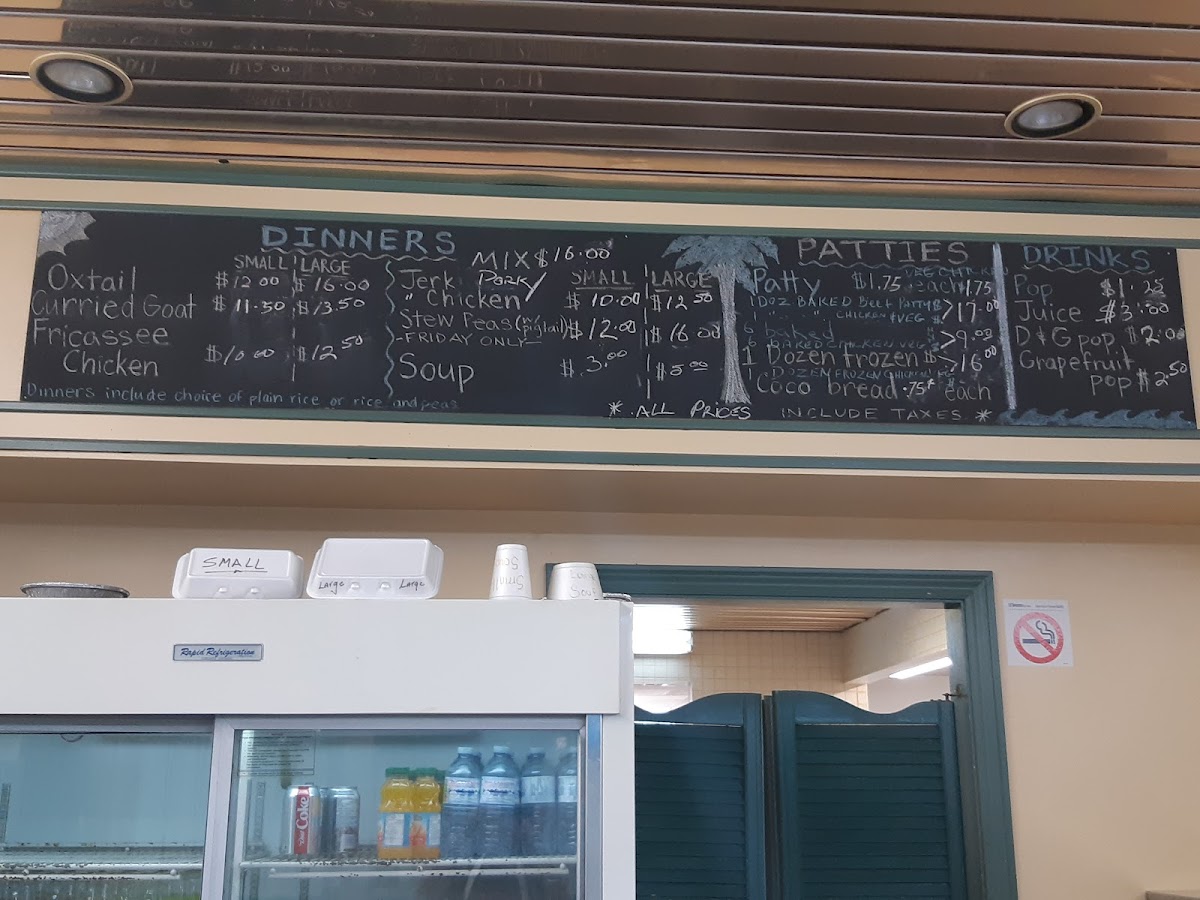 DINNERS
SMALL LARGE
Oxtail $12.00 $16.00
Curried Goat $11.50 $13.50
Fricassee
Chicken $10.00 $12.50
Dinners include choice of plain rice or rice and peas
MIX $16.00
SMALL LARGE
Jerk Pork
" Chicken $10.00 $12.50
Stew Peas (w/ pigtail) $12.00 $16.00
-FRIDAY ONLY-
Soup $3.00 $5.00
PATTIES
VEG CHICKEN
Patty $1.75 each 1.75
1 DOZ BAKED Beef Patty
" " CHICKEN & VEG $17.00
6 baked
6 BAKED CHICKEN VEG $9.93
1 Dozen frozen $16.00
1 DOZEN FROZEN CHICKEN
Coco bread .75¢ each
* ALL PRICES INCLUDE TAXES *
DRINKS
Pop $1.25
Juice $3.00
D & G pop $2.00
Grapefruit
pop $2.50
SMALL
Large Large
Small
Soup
Large
Soup
Rapid Refrigeration
Diet Coke